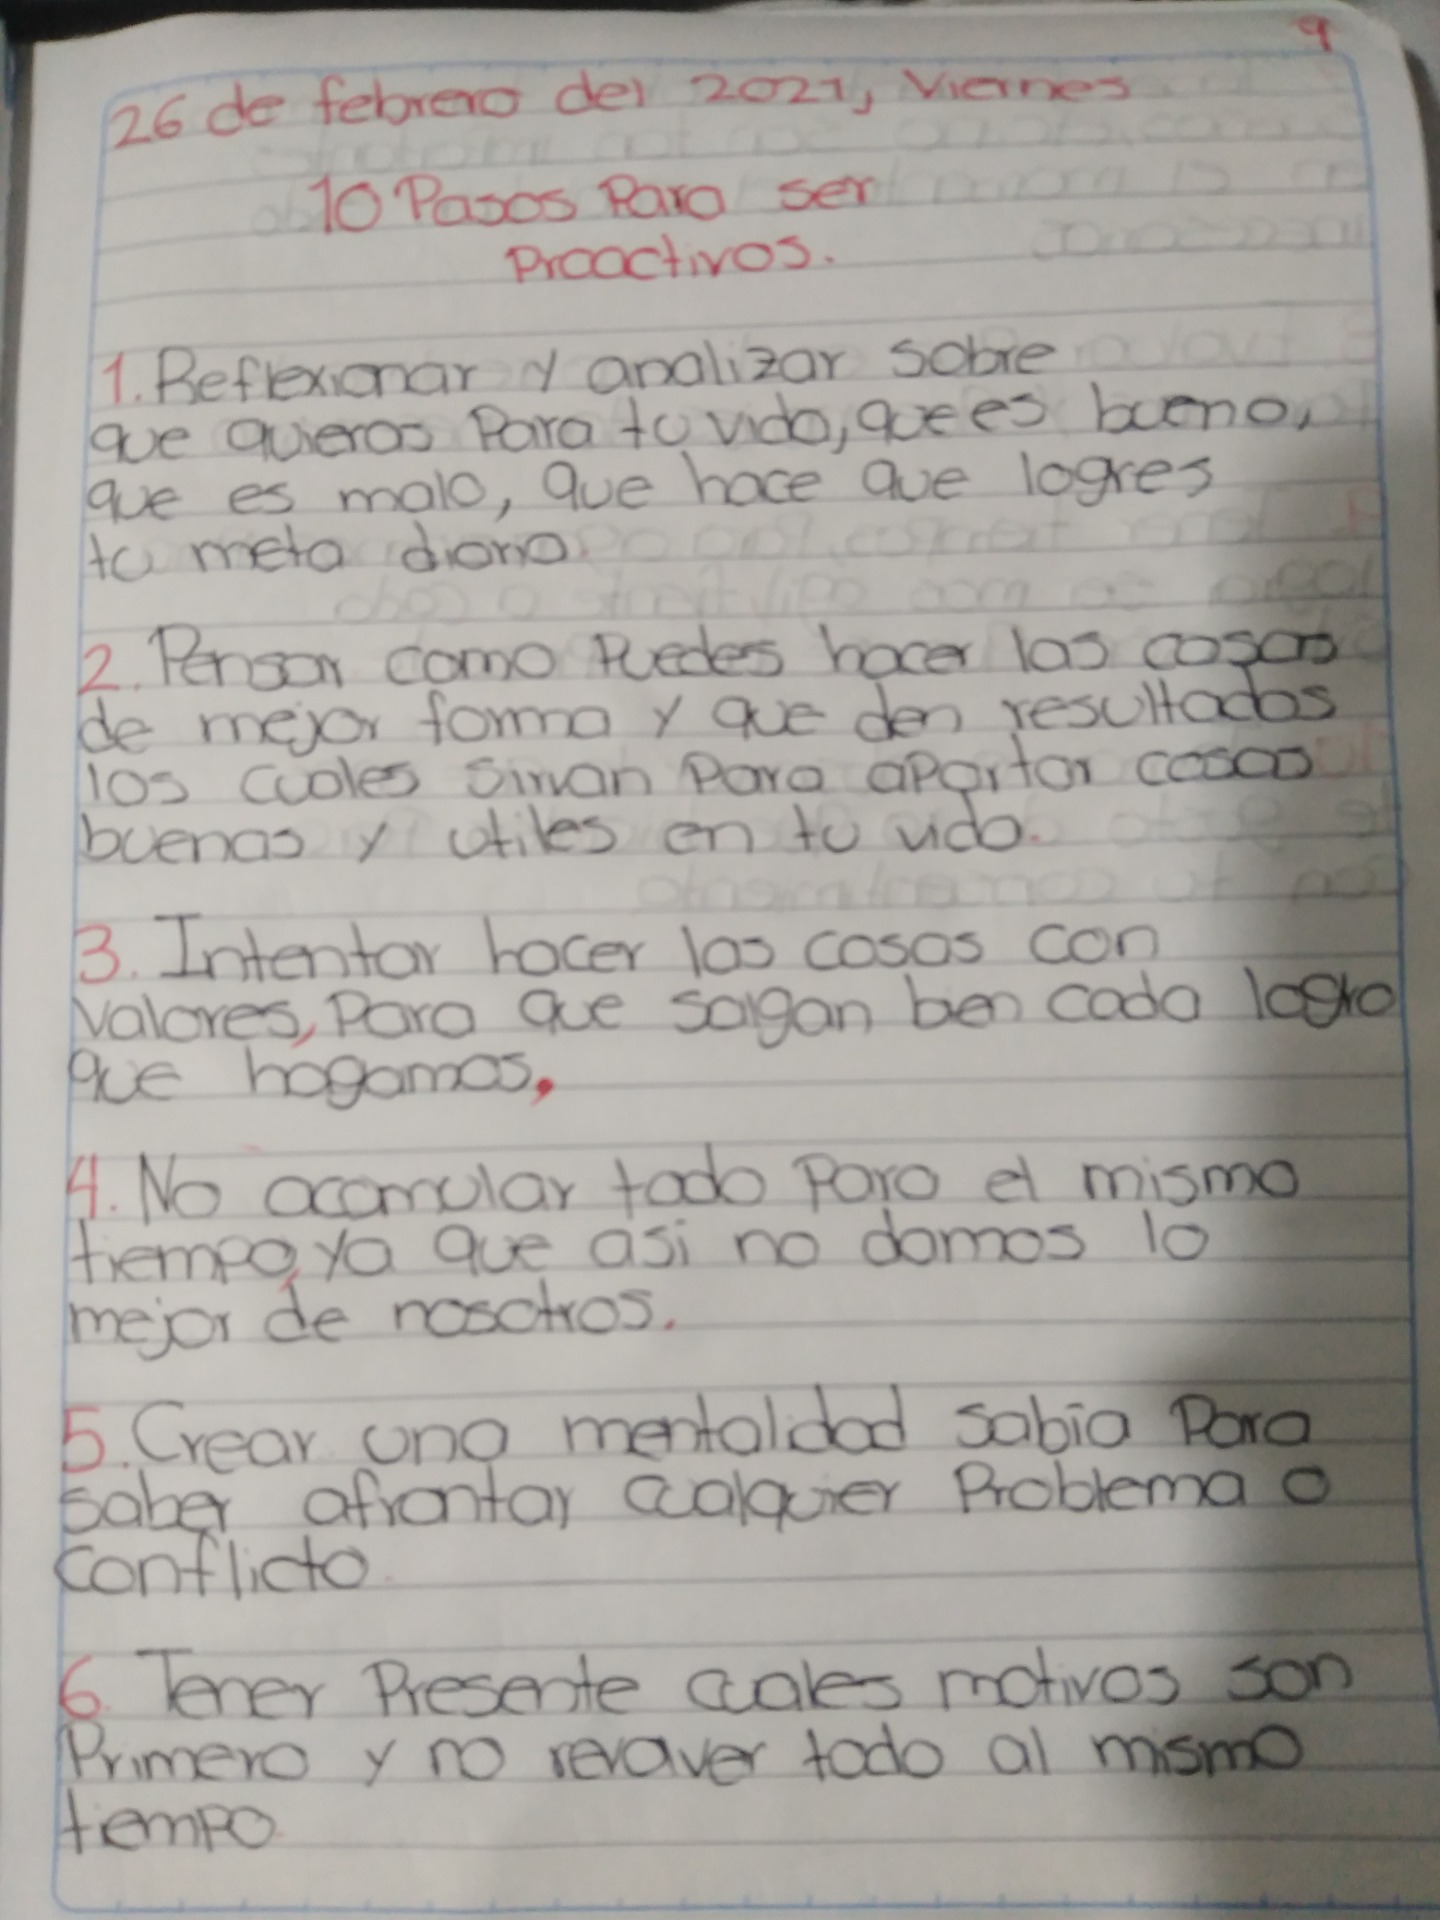 9
26 de febrero del 2021, Viernes
10 Pasos Para ser
Proactivos.
1. Reflexionar y analizar sobre
que quieras Para tu vida, que es bueno,
que es malo, que hace que logres
tu meta diaria.
2. Pensar como Puedes hacer las cosas
de mejor forma y que den resultados
los cuales sirvan Para aPortar cosas
buenas y utiles en tu vida.
3. Intentar hacer las cosas con
valores, Para que salgan bien cada logro
que hagamos.
4. No acomular todo Para el mismo
tiempo, ya que asi no damos lo
mejor de nosotros.
5. Crear una mentalidad sabia Para
saber afrontar cualquier Problema o
conflicto.
6. Tener Presente cuales motivos son
Primero y no todo al mismo
tiemPo.